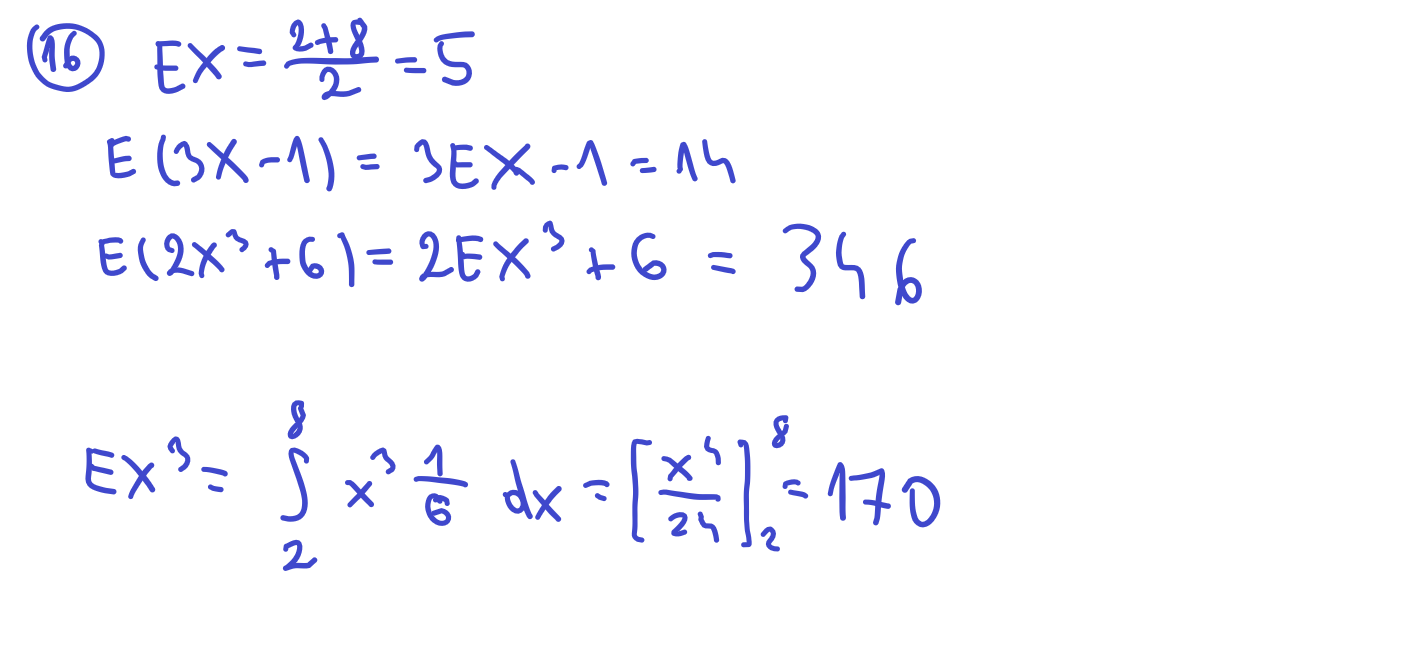 16 EX = (2+8)/2 = 5
E(3X - 1) = 3EX - 1 = 14
E(2X³ + 6) = 2EX³ + 6 = 346
EX³ = ∫₂⁸ x³ 1/6 dx = [x⁴/24]₂⁸ = 170